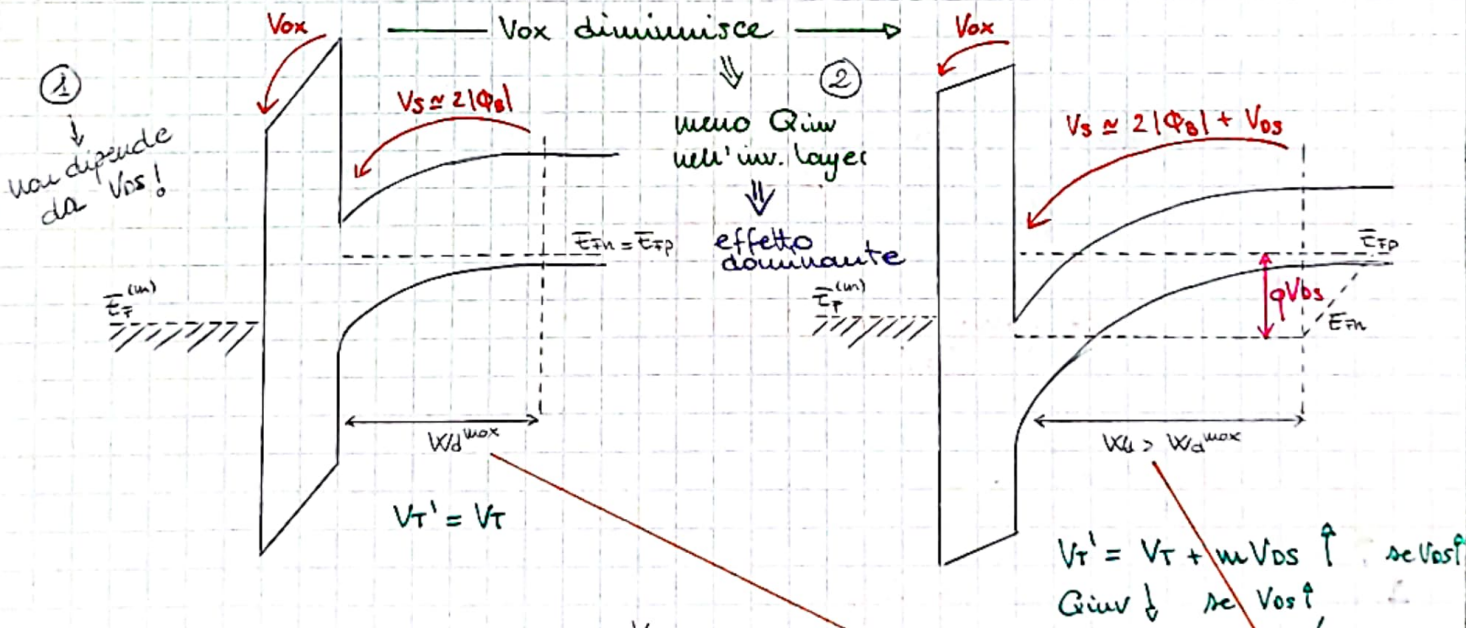 Vox
Vox diminuisce
Vox
①
②
Vs ≃ 2|ΦB|
non dipende
da VDS!
meno Qinv
nell'inv. layer
Vs ≃ 2|ΦB| + VDS
effetto
dominante
EFn = EFp
EFp
EF(m)
EF(m)
qVDS
EFn
Wdmax
Wd > Wdmax
VT' = VT
VT' = VT + mVDS ↑ se VDS↑
Qinv ↓ se VDS↑